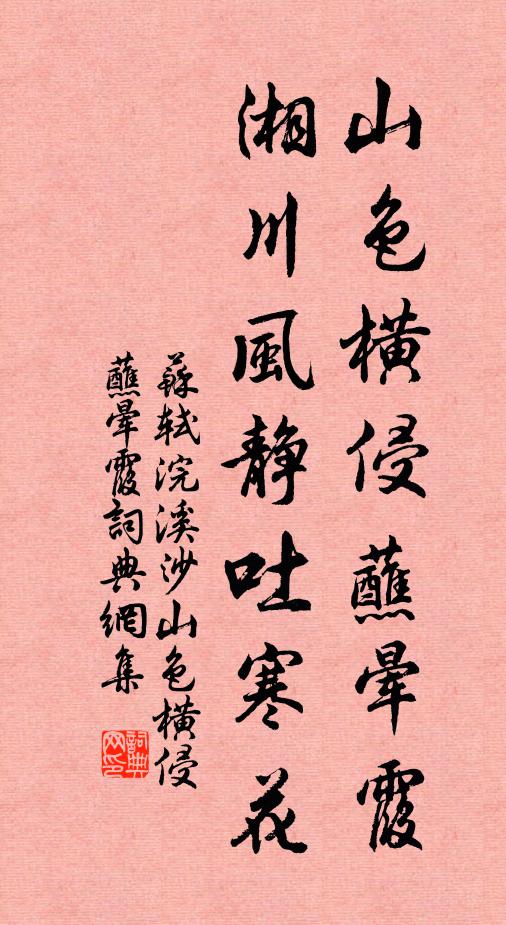 山色橫侵蘸暈霞
湘川風靜吐寒花
蘇軾浣溪沙山色橫侵
蘸暈霞詞典網集
詞典网印